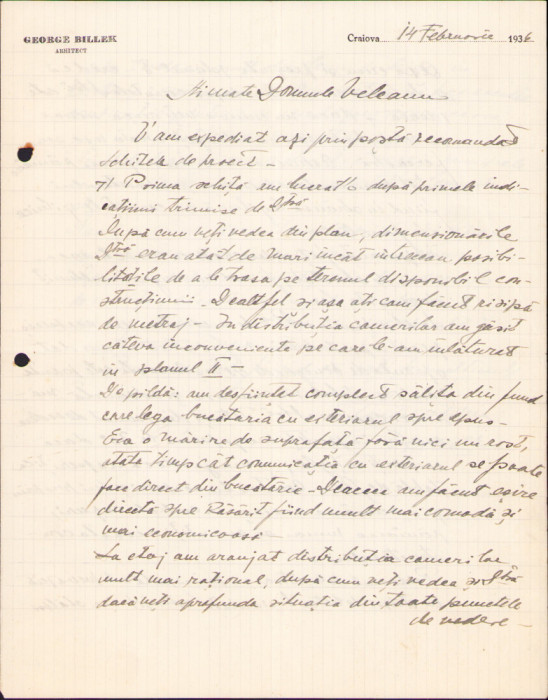 GEORGE BILLEK
ARHITECT
Craiova 14 Februarie 1936
Stimate Domnule Veleanu
V'am expediat azi prin poștă recomandat
schițele de
1/ Prima schiță am lucrat'o după primele indi-
cațiuni trimise de Dtră
După cum veți vedea din plan, dimensionările
Dtră erau atât de mari încât întreceau posibi-
litățile de a le trasa pe terenul disponibil con-
strucțiunii. Dealtfel și așa ați cam făcut risipă
de metraj – In distribuția camerilor am găsit
câteva inconveniente pe care le-am înlăturat
in planul II –
De pildă: am desființat complect sălița din fund
care lega bucătaria cu exteriorul spre apus –
Era o mărire de suprafață fără nici un rost,
atata timp cât comunicația cu exteriorul se poate
face direct din bucătarie – Deaceea am făcut eșire
directă spre Răsărit fiind mult mai comodă și
mai economicoasă
La etaj am aranjat distribuția camerilor
mult mai rațional, după cum veți vedea și Dtră
dacă veți aprofunda situația din toate punctele
de vedere –